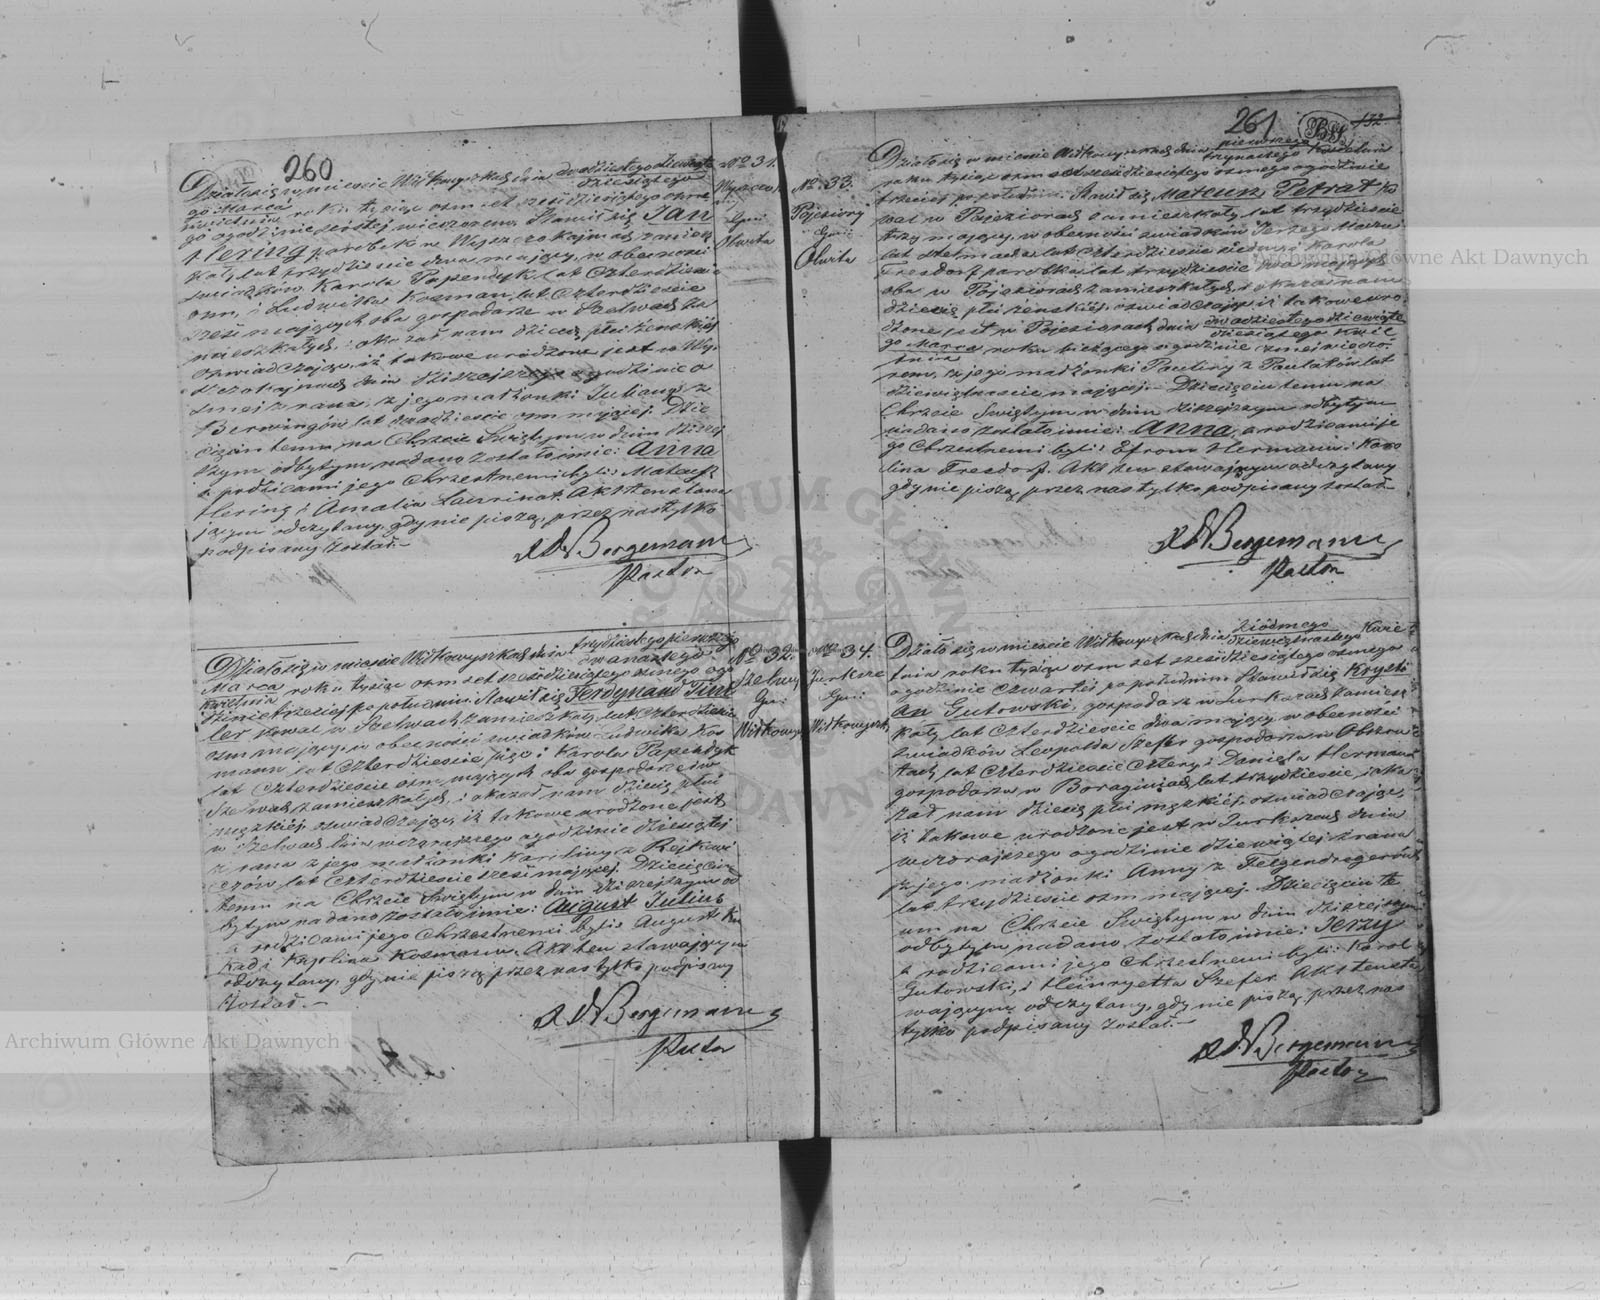 260
Działo się w mieście Wiłkowyszkach dnia dwudziestego dziewiąte
dziesiątego
go Marca
Kwietnia roku tysiąc osm set sześćdziesiątego osme
go o godzinie szóstej wieczorem. Stawił się Jan
Hering parobek w zamiesz
kały, lat trzydzieście dwa mający, w obecności
świadków Karola Papendyk, lat czterdzieście
osm, i Ludwika Kosman, lat czterdzieście
sześć mających oba gospodarze w Szelwach za
mieszkałych, i okazał nam dziecię płci żeńskiej
oświadczając, iż takowe urodzone jest w Wy
dnia dzisiejszego o godzinie o
smej z rana, z jego małżonki Julianny z
Berwingów, lat dwadzieście osm mającej. Dzie
cięciu temu na Chrzcie Świętym w dniu dzisiej
szym odbytym nadano zostało imie: Anna
a rodzicami jego Chrzestnemi byli: Mateusz
Hering i Amalia Laurinat. Akt ten stawa
jącym odczytany, gdy nie piszą, przez nas tylko
podpisany został.—
Bergemann
Pastor
No 31.
Gmi:
Olwita
Działo się w mieście Wiłkowyszkach dnia trzydziestego pierwszego
dwunastego
Marca
Kwietnia roku tysiąc osm set sześćdziesiątego osmego o go
dzinie trzeciej po południu. Stawił się Ferdynand Tint
ler kowal w Szelwach zamieszkały, lat czterdzieście
osm mający, w obecności świadków Ludwika Kos
mann lat czterdzieście sześć i Karola Papendyk
lat czterdzieście osm, mających oba gospodarze w
Szelwach zamieszkałych, i okazał nam dziecię płci
męzkiej, oświadczając, iż takowe urodzone jest
w Szelwach dnia wczorajszego o godzinie dziesiątej
z rana z jego małżonki Karoliny z Rejkowi
czów, lat czterdzieście sześć mającej. Dziecięciu
temu na Chrzcie Świętym w dniu dzisiejszym od
bytym nadano zostało imie: August Julius
a rodzicami jego Chrzestnemi byli: August Ku
kad i Karolina Kosmann. Akt ten stawającym
odczytany, gdy nie piszą, przez nas tylko podpisany
został.—
Bergemann
Pastor
No 32.
Szelwy
Gmi:
Wiłkowysz
261
132
Działo się w mieście Wiłkowyszkach dnia pierwszego
trzynastego Kwietnia
roku tysiąc osm set sześćdziesiątego osmego o godzinie
trzeciej po południu. Stawił się Mateusz Petrat, ko
wal w Pojeziorach zamieszkały, lat trzydzieście
trzy mający, w obecności świadków Jerzego
Stelmacha, lat czterdzieście siedm, i Karola
Fresdorf parobka, lat trzydzieście dwa mających
oba w Pojeziorach zamieszkałych, i okazał nam
dziecię płci żeńskiej, oświadczając, iż takowe uro
dzone jest w Pojeziorach dnia dwudziestego dziewiąte
dziesiątego Kwie
go Marca roku bieżącego o godzinie osmej wieczo
tnia
rem, z jego małżonki Pauliny z Paulatów lat
dziewiętnaście mającej.— Dziecięciu temu na
Chrzcie Świętym w dniu dzisiejszym odbytym
nadano zostało imie: Anna, a rodzicami je
go Chrzestnemi byli: Efrom Hermann i Karo
lina Fresdorf. Akt ten stawającym odczytany
gdy nie piszą, przez nas tylko podpisany został.—
Bergemann
Pastor
No 33.
Pojeziory
Gmi:
Olwita
Działo się w mieście Wiłkowyszkach dnia siódmego
dziewiętnastego Kwie
tnia roku tysiąc osm set sześćdziesiątego osmego
o godzinie czwartej po południu. Stawił się Kryšti
an Gutowski, gospodarz w Turkszach zamiesz
kały, lat czterdzieście dwa mający, w obecności
świadków Leopolda Szefer gospodarza w
lat czterdzieście cztery, i Daniela Herman
gospodarza w lat trzydzieście, i oka
zał nam dziecię płci męzkiej, oświadczając,
iż takowe urodzone jest w dnia
wczorajszego o godzinie dziewiątej z rana
z jego małżonki Anny z Felgendregerów
lat trzydzieście osm mającej. Dziecięciu te
mu na Chrzcie Świętym w dniu dzisiejszym
odbytym nadano zostało imie: Jerzy
a rodzicami jego Chrzestnemi byli: Karol
Gutowski, i Heinryetta Szefer. Akt ten sta
wającym odczytany, gdy nie piszą, przez nas
tylko podpisany został.—
Bergemann
Pastor
No 34.
Gmi:
Wiłkowyszk
Archiwum Główne Akt Dawnych
Archiwum Główne Akt Dawnych
ARCHIWUM GŁÓWNE
AKT DAWNYCH